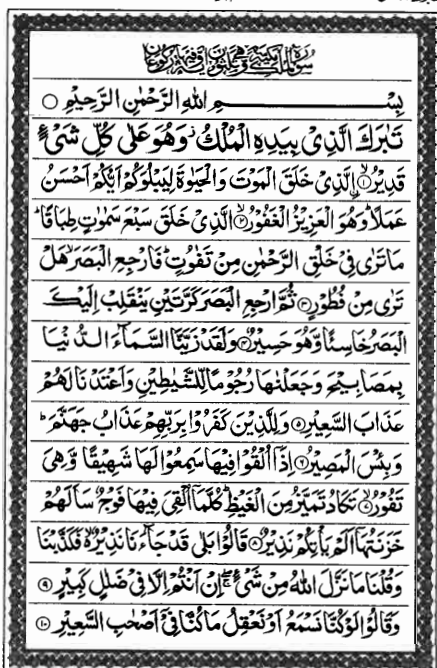 سُوْرَةُ الْمُلْكِ مَكِّيَّةٌ وَّهِىَ ثَلٰثُوْنَ اٰيَةً وَّفِيْهَا رُكُوْعَانِ
بِسْمِ اللهِ الرَّحْمٰنِ الرَّحِيْمِ ○
تَبٰرَكَ الَّذِيْ بِيَدِهِ الْمُلْكُ وَهُوَ عَلٰى كُلِّ شَيْءٍ
قَدِيْرُ ۙ۝۱ اِۨلَّذِيْ خَلَقَ الْمَوْتَ وَالْحَيٰوةَ لِيَبْلُوَكُمْ اَيُّكُمْ اَحْسَنُ
عَمَلًا ؕ وَهُوَ الْعَزِيْزُ الْغَفُوْرُ ۙ۝۲ الَّذِيْ خَلَقَ سَبْعَ سَمٰوٰتٍ طِبَاقًا ؕ
مَا تَرٰى فِيْ خَلْقِ الرَّحْمٰنِ مِنْ تَفٰوُتٍ ؕ فَارْجِعِ الْبَصَرَ ۙ هَلْ
تَرٰى مِنْ فُطُوْرٍ ۝۳ ثُمَّ ارْجِعِ الْبَصَرَ كَرَّتَيْنِ يَنْقَلِبْ اِلَيْكَ
الْبَصَرُ خَاسِئًا وَّهُوَ حَسِيْرٌ ۝۴ وَلَقَدْ زَيَّنَّا السَّمَآءَ الدُّنْيَا
بِمَصَابِيْحَ وَجَعَلْنٰهَا رُجُوْمًا لِّلشَّيٰطِيْنِ وَاَعْتَدْنَا لَهُمْ
عَذَابَ السَّعِيْرِ ۝۵ وَلِلَّذِيْنَ كَفَرُوْا بِرَبِّهِمْ عَذَابُ جَهَنَّمَ ؕ
وَبِئْسَ الْمَصِيْرُ ۝۶ اِذَآ اُلْقُوْا فِيْهَا سَمِعُوْا لَهَا شَهِيْقًا وَّهِىَ
تَفُوْرُ ۙ۝۷ تَكَادُ تَمَيَّزُ مِنَ الْغَيْظِ ؕ كُلَّمَآ اُلْقِىَ فِيْهَا فَوْجٌ سَاَلَهُمْ
خَزَنَتُهَآ اَلَمْ يَاْتِكُمْ نَذِيْرٌ ۝۸ قَالُوْا بَلٰى قَدْ جَآءَنَا نَذِيْرٌ ۙ فَكَذَّبْنَا
وَقُلْنَا مَا نَزَّلَ اللهُ مِنْ شَيْءٍ ۖۚ اِنْ اَنْتُمْ اِلَّا فِيْ ضَلٰلٍ كَبِيْرٍ ۝۹
وَقَالُوْا لَوْ كُنَّا نَسْمَعُ اَوْ نَعْقِلُ مَا كُنَّا فِيْٓ اَصْحٰبِ السَّعِيْرِ ۝۱۰